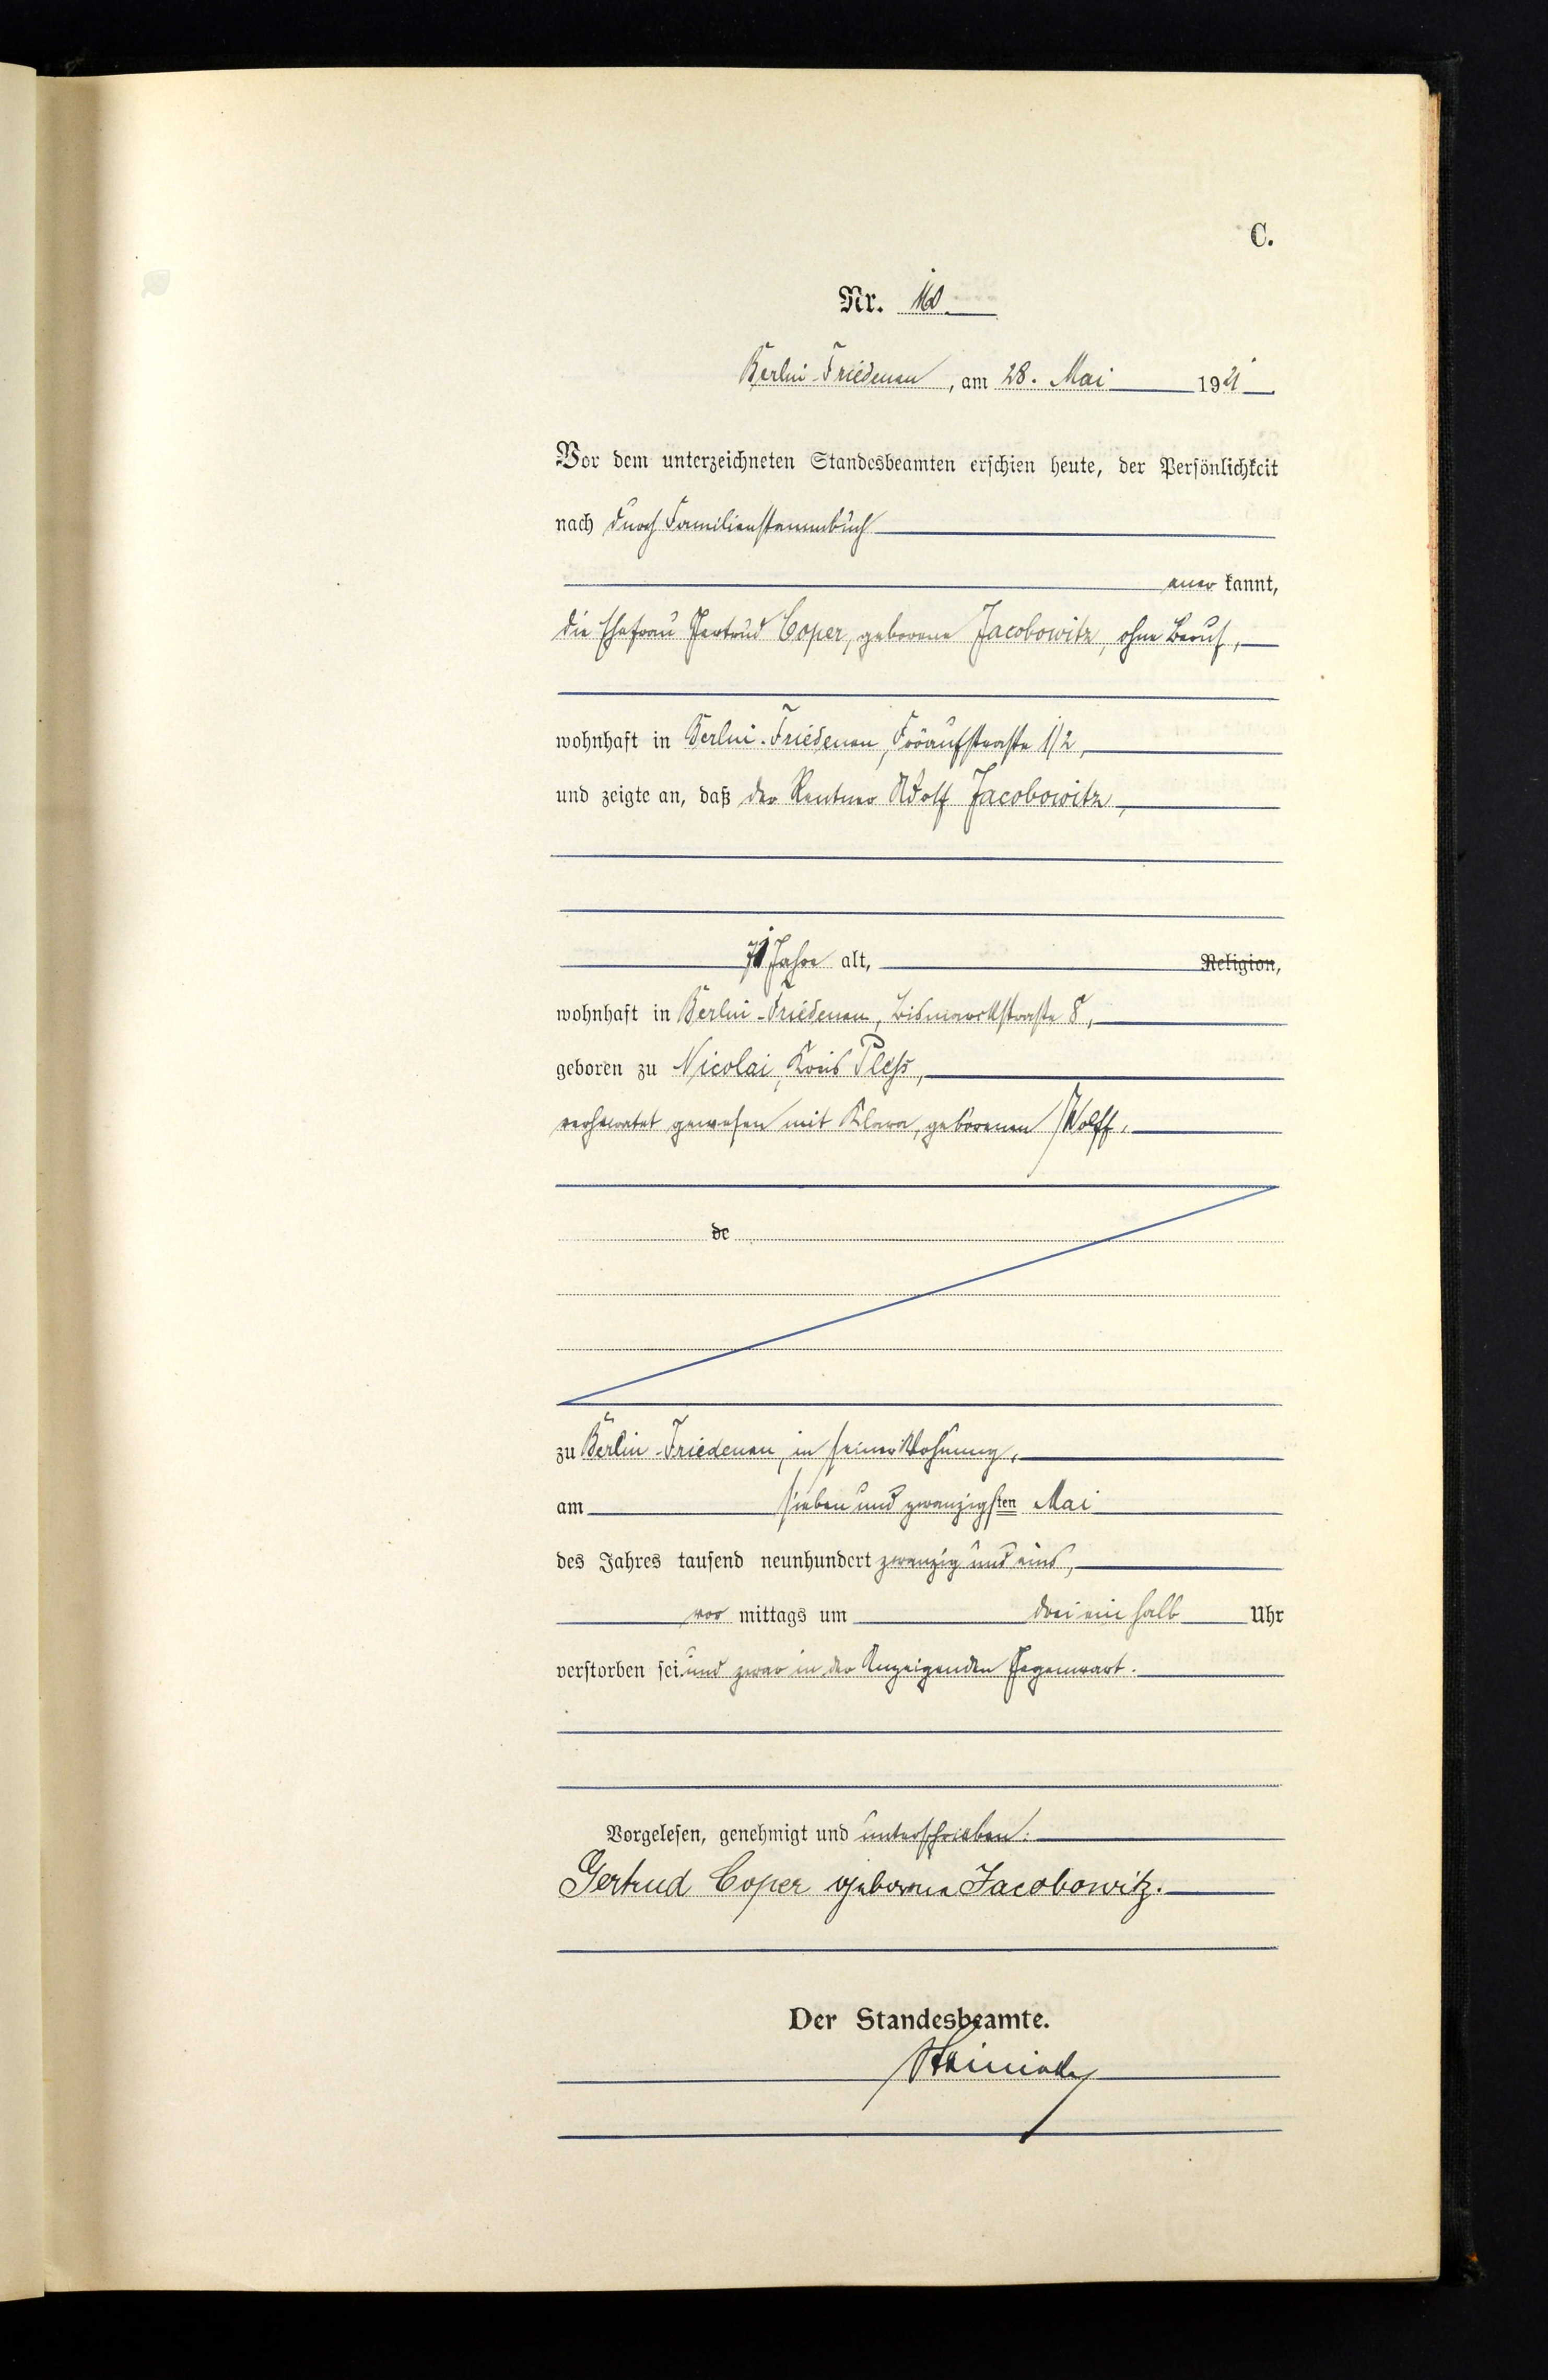 C.
Nr. 160
Berlin-Friedenau, am 28. Mai 1921
Vor dem unterzeichneten Standesbeamten erschien heute, der Persönlichkeit
nach durch Familienstammbuch
aner kannt,
die Ehefrau Gertrud Coper, geborene Jacobowitz, ohne Beruf,
wohnhaft in Berlin-Friedenau, Fröaufstraße 1/2,
und zeigte an, daß der Rentner Adolf Jacobowitz,
71 Jahre alt, Religion,
wohnhaft in Berlin-Friedenau, Bismarckstraße 8,
geboren zu Nicolai, Kreis Pless,
verheiratet gewesen mit Klara, geborenen Wolff.
de
zu Berlin-Friedenau, in seiner Wohnung,
am sieben und zwanzigsten Mai
des Jahres tausend neunhundert zwanzig und eins,
vor mittags um drei ein halb Uhr
verstorben sei und zwar in der Anzeigenden Gegenwart.
Vorgelesen, genehmigt und unterschrieben.
Gertrud Coper geborene Jacobowitz.
Der Standesbeamte.